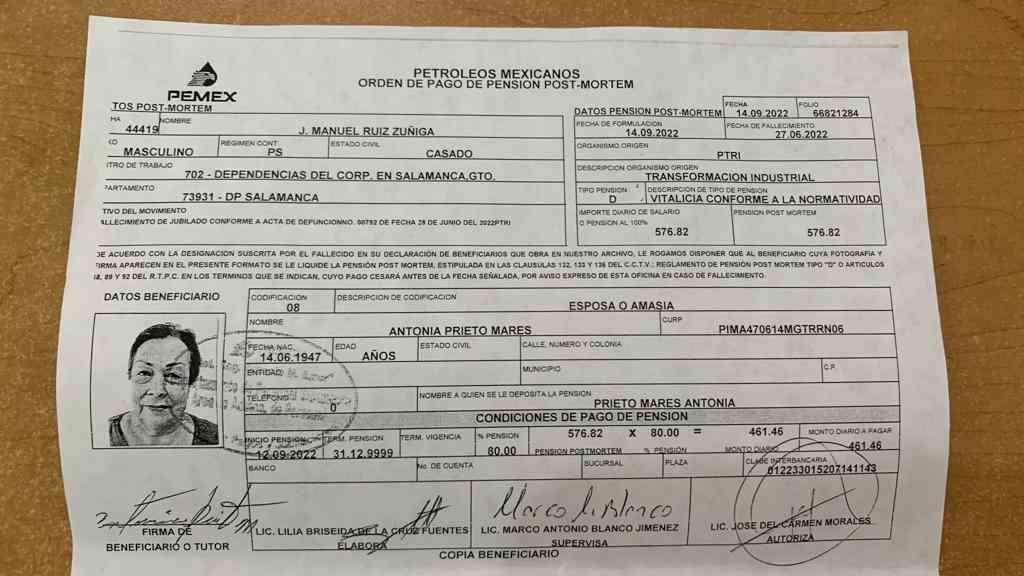 PEMEX
PETROLEOS MEXICANOS
ORDEN DE PAGO DE PENSION POST-MORTEM
TOS POST-MORTEM
DATOS PENSION POST-MORTEM
FECHA
14.09.2022
FOLIO
66821284
HA
44419
NOMBRE
J. MANUEL RUIZ ZUÑIGA
FECHA DE FORMULACION
14.09.2022
FECHA DE FALLECIMIENTO
27.06.2022
XO
MASCULINO
REGIMEN CONT.
PS
ESTADO CIVIL
CASADO
ORGANISMO ORIGEN
PTRI
TRO DE TRABAJO
702 - DEPENDENCIAS DEL CORP. EN SALAMANCA,GTO.
DESCRIPCION ORGANISMO ORIGEN
TRANSFORMACION INDUSTRIAL
PARTAMENTO
73931 - DP SALAMANCA
TIPO PENSION
D
DESCRIPCION DE TIPO DE PENSION
VITALICIA CONFORME A LA NORMATIVIDAD
TIVO DEL MOVIMIENTO
ALLECIMIENTO DE JUBILADO CONFORME A ACTA DE DEFUNCIONNO. 00792 DE FECHA 28 DE JUNIO DEL 2022PTRI
IMPORTE DIARIO DE SALARIO
O PENSION AL 100%
576.82
PENSION POST MORTEM
576.82
DE ACUERDO CON LA DESIGNACION SUSCRITA POR EL FALLECIDO EN SU DECLARACIÓN DE BENEFICIARIOS QUE OBRA EN NUESTRO ARCHIVO, LE ROGAMOS DISPONER QUE AL BENEFICIARIO CUYA FOTOGRAFIA Y
FIRMA APARECEN EN EL PRESENTE FORMATO SE LE LIQUIDE LA PENSIÓN POST MORTEM, ESTIPULADA EN LAS CLAUSULAS 132, 133 Y 136 DEL C.C.T.V.; REGLAMENTO DE PENSIÓN POST MORTEM TIPO "D" O ARTICULOS
88, 89 Y 92 DEL R.T.P.C. EN LOS TERMINOS QUE SE INDICAN, CUYO PAGO CESARÁ ANTES DE LA FECHA SEÑALADA, POR AVISO EXPRESO DE ESTA OFICINA EN CASO DE FALLECIMIENTO.
DATOS BENEFICIARIO
CODIFICACION
08
DESCRIPCION DE CODIFICACION
ESPOSA O AMASIA
NOMBRE
ANTONIA PRIETO MARES
CURP
PIMA470614MGTRRN06
FECHA NAC.
14.06.1947
EDAD
AÑOS
ESTADO CIVIL
CALLE, NUMERO Y COLONIA
ENTIDAD
MUNICIPIO
C.P.
TELEFONO
0
NOMBRE A QUIEN SE LE DEPOSITA LA PENSION
PRIETO MARES ANTONIA
CONDICIONES DE PAGO DE PENSION
INICIO PENSION
12.09.2022
TERM. PENSION
31.12.9999
TERM. VIGENCIA
% PENSION
80.00
576.82 X 80.00 = 461.46
PENSION POSTMORTEM % PENSIÓN MONTO DIARIO
MONTO DIARIO A PAGAR
461.46
BANCO
No. DE CUENTA
SUCURSAL
PLAZA
CLABE INTERBANCARIA
012233015207141143
Marco A. Blanco
FIRMA DE
BENEFICIARIO O TUTOR
LIC. LILIA BRISEIDA DE LA CRUZ FUENTES
ELABORA
LIC. MARCO ANTONIO BLANCO JIMENEZ
SUPERVISA
LIC. JOSE DEL CARMEN MORALES
AUTORIZA
COPIA BENEFICIARIO